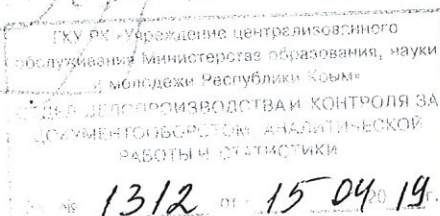 ГКУ РК «Учреждение централизованного
обслуживания Министерства образования, науки
и молодежи Республики Крым»
ОТДЕЛ ДЕЛОПРОИЗВОДСТВА И КОНТРОЛЯ ЗА
ДОКУМЕНТООБОРОТОМ, АНАЛИТИЧЕСКОЙ
РАБОТЫ И СТАТИСТИКИ
№ 1312 от 15 04 20 19 г.